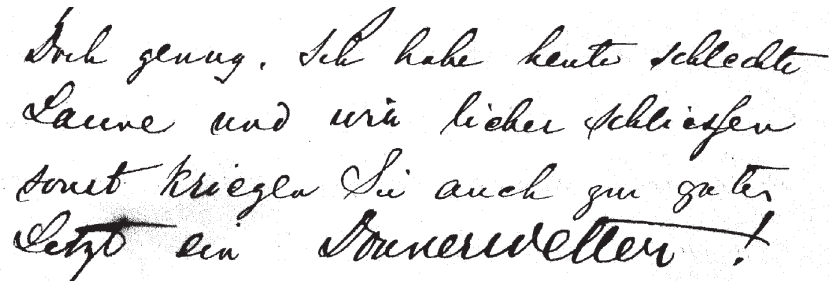 Doch genug. Ich habe heute schlechte
Laune und will lieber schliessen
sonst kriegen Sie auch zur guter
Letzt ein Donnerwetter!